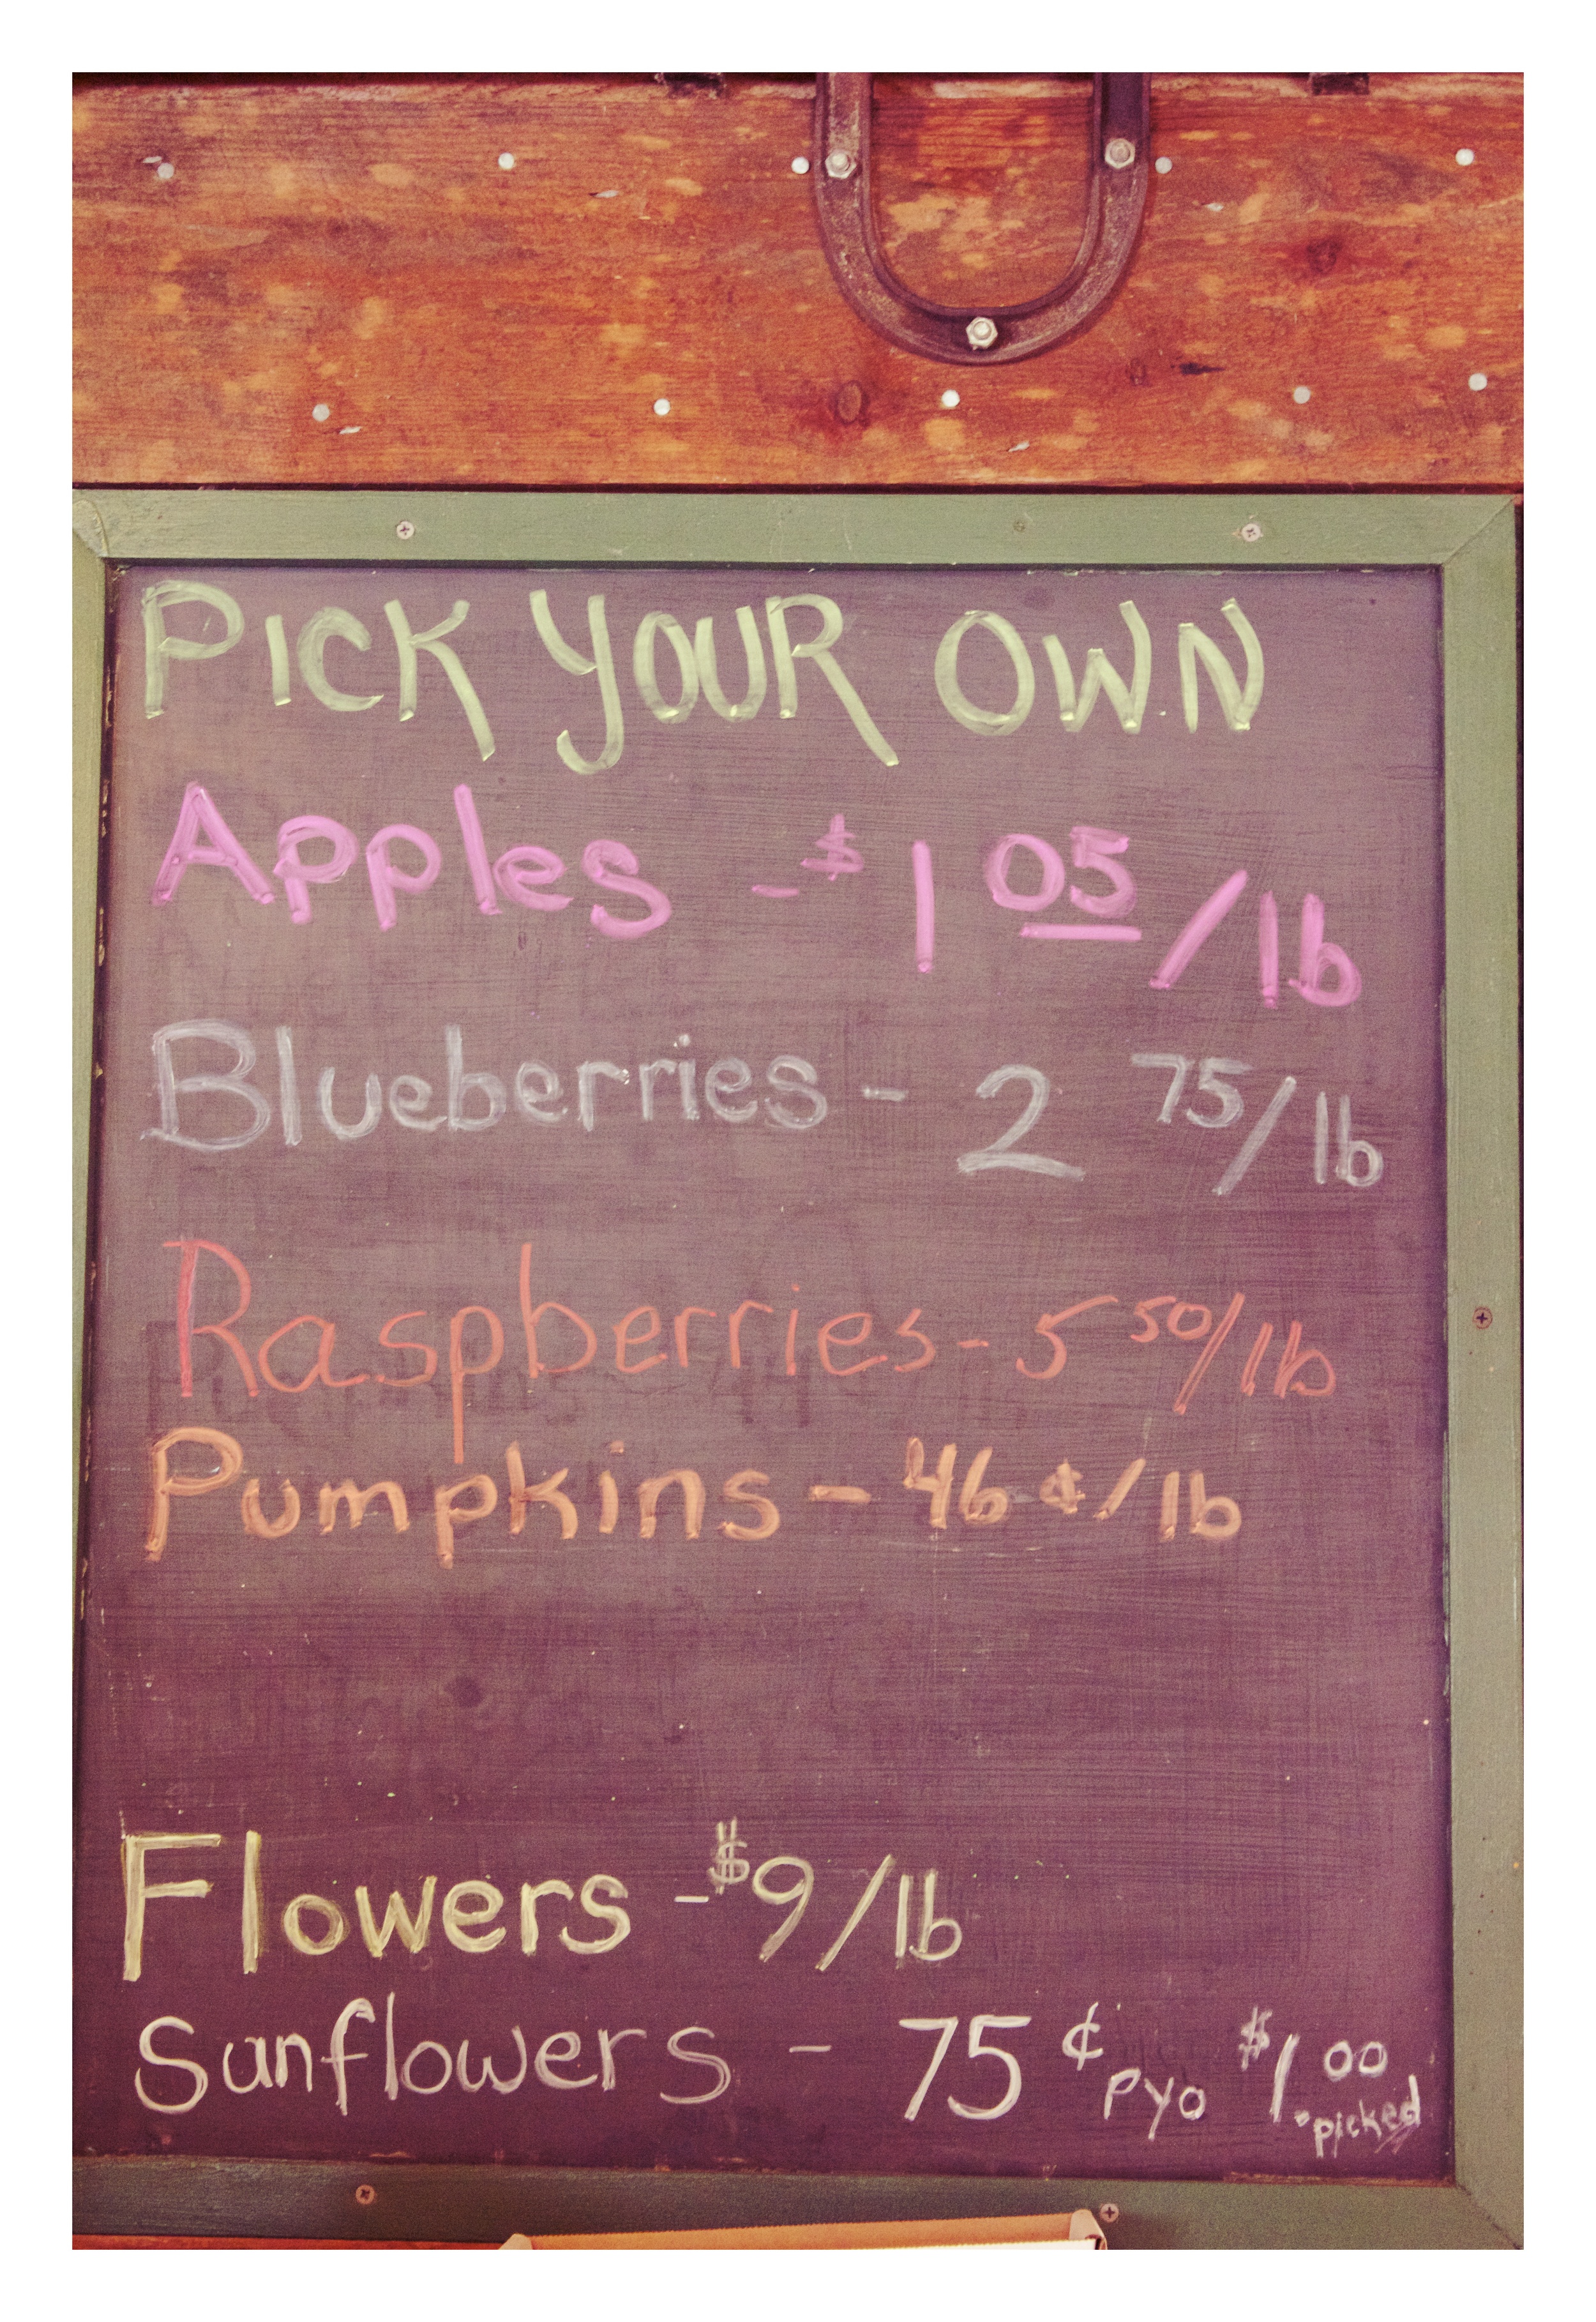 PICK YOUR OWN
Apples - $1 05/lb
Blueberries - 2 75/lb
Raspberries - 5 50/lb
Pumpkins - 46 ¢/lb
Flowers - $9/lb
Sunflowers - 75 ¢ PYO $1 00 picked